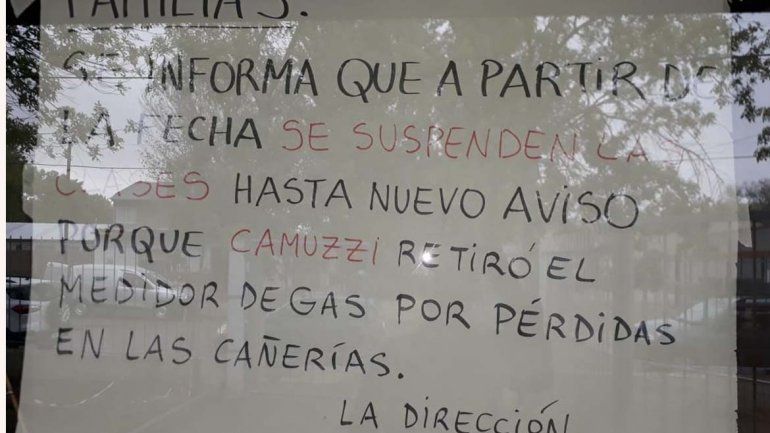 FAMILIAS.
SE INFORMA QUE A PARTIR DE
LA FECHA SE SUSPENDEN LAS
CLASES HASTA NUEVO AVISO
PORQUE CAMUZZI RETIRÓ EL
MEDIDOR DE GAS POR PÉRDIDAS
EN LAS CAÑERÍAS.
LA DIRECCIÓN